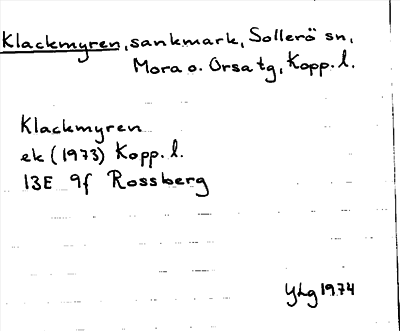 Klackmyren, sankmark, Sollerö sn,
Mora o. Orsa tg, Kopp. l.
Klackmyren
ek (1973) Kopp. l.
13E 9f Rossberg
YLg 1974